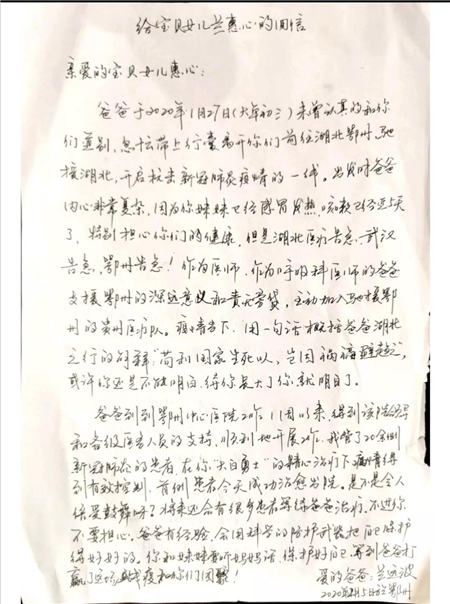 给宝贝女儿兰惠心的回信
亲爱的宝贝女儿惠心:
爸爸于2020年1月27日(大年初三)未曾认真的和你
们道别,急忙带上行囊离开你们前往湖北鄂州,驰
援湖北,开启抗击新冠肺炎疫情的一线。出发时爸爸
内心非常复杂,因为你妹妹已经感冒发热、咳嗽已经五天
了,特别担心你们的健康,但是湖北医疗告急,武汉
告急,鄂州告急!作为医师,作为呼吸科医师的爸爸
支援鄂州的深远意义和责无旁贷,主动加入驰援鄂
州的贵州医疗队。疫情当下,用一句话概括爸爸湖北
之行的解释"苟利国家生死以,岂因祸福避趋之",
或许你还是不能明白,待你长大了你就明白了。
爸爸到到鄂州中心医院工作11日以来,得到该院领导
和各级医务人员的支持,顺利地开展工作,我管了20余例
新冠肺炎的患者,在你"大白勇士"的精心治疗下病情得
到有效控制,首例患者今天成功治愈出院。是不是令人
倍受鼓舞啊?将来还会有很多患者等待爸爸治疗,不过你
不要担心,爸爸有经验,会用科学的防护武装把自己保护
得好好的。你和妹妹要听妈妈话,保护好自己,等到爸爸打
赢了这场战疫和你们团聚!
爱的爸爸:兰远波